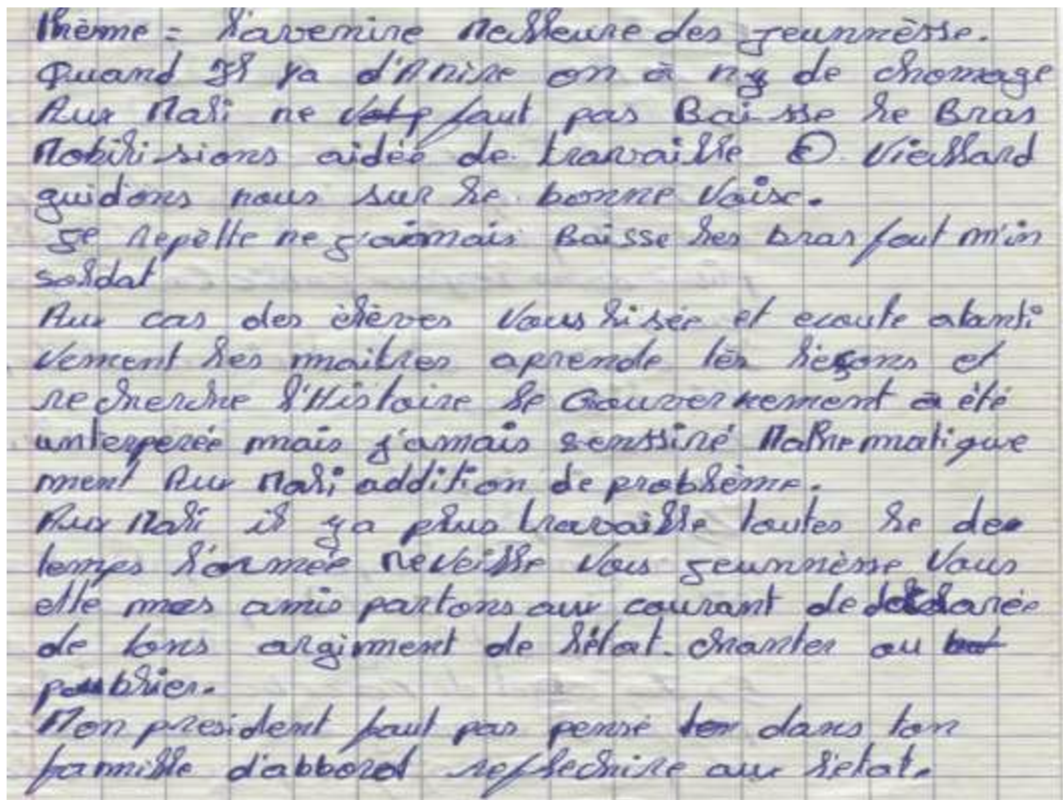 thème = l'avenire meilleure des jeunnèsse.
Quand Il ya d'Anise on à ny de chomage
Aux Mali ne faut pas Baisse le Bras
Mobilisions aidée de travaille Vieillard
guidons nous sur le bonne Voise.
Je Repètte ne j'aimais Baisse les bras faut m'in
soldat
Aux cas des élèves Vous lisée et ecoute atanti
Vement les maitres aprende les leçons et
recherche l'Histoire le Gouvernement a été
unterperée mais j'amais senssiné Mathematique
ment Aux Mali addition de problème.
Aux Mali il ya plus travaille toutes le de
temps l'année Reveille Vous jeunnèsse Vous
ette mes amis partons aux courant de
de tons argiment de l'état. chanter ou
poublier.
Mon president faut pas pensé dans ton
famille d'abbord reflechire aux l'etat.